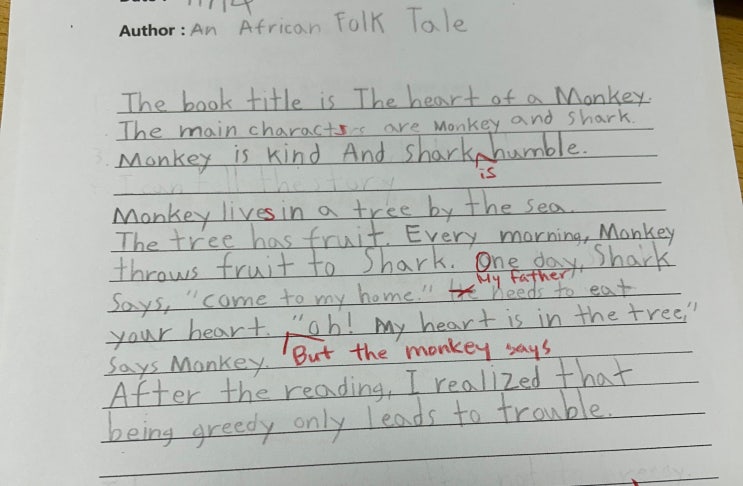 Author : An African Folk Tale
The book title is The heart of a Monkey.
The main characters are Monkey and shark.
Monkey is kind And shark humble.
is
I can tell the story
Monkey lives in a tree by the sea.
The tree has fruit. Every morning, Monkey
throws fruit to Shark. One day, Shark
My father
Says, "come to my home." He needs to eat
your heart. "oh! My heart is in the tree,"
But the monkey says
says Monkey.
After the reading, I realized that
being greedy only leads to trouble.